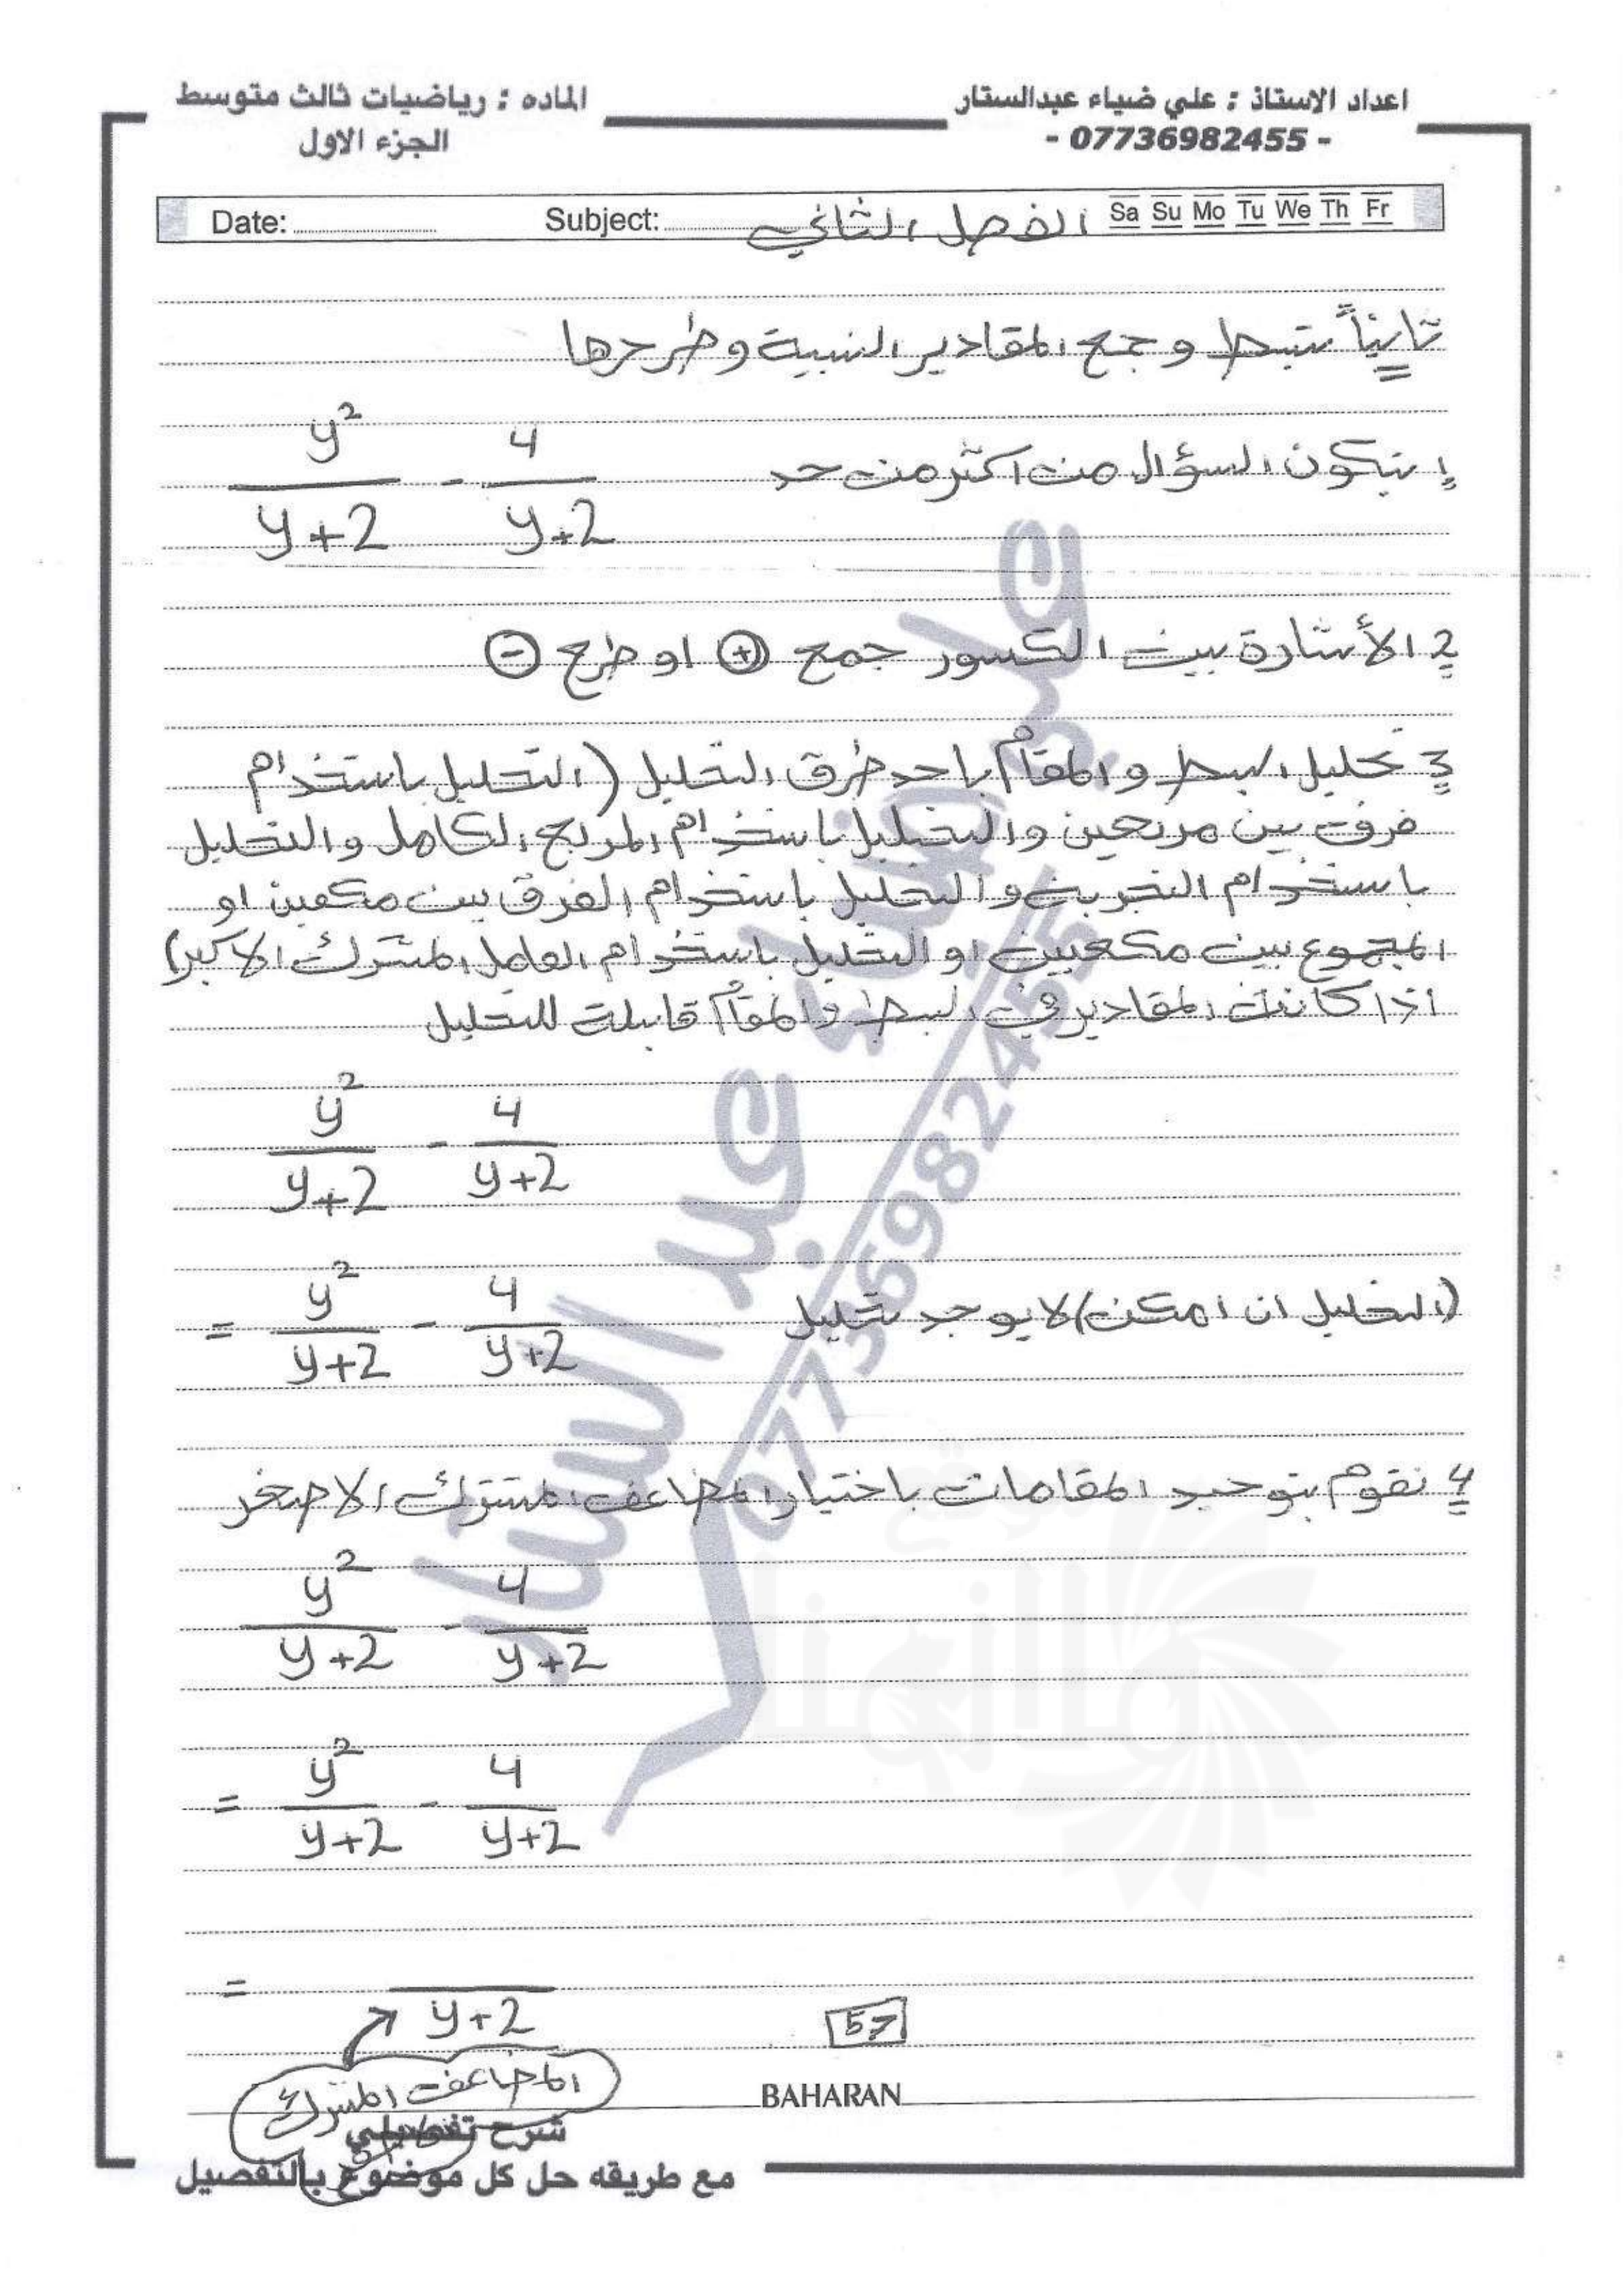 اعداد الاستاذ : علي ضياء عبدالستار
- 07736982455 -
الماده : رياضيات ثالث متوسط
الجزء الاول
Date: Subject: الفصل الثاني Sa Su Mo Tu We Th Fr
ثانياً تبسيط وجمع المقادير النسبية وطرحها
1 يتكون السؤال من اكثر من حد
y² / y+2 - 4 / y+2
2 الأشارة بين الكسور جمع (+) او طرح (-)
3 تحليل البسط والمقام باحد طرق التحليل (التحليل باستخدام
فرق بين مربعين والتحليل باستخدام المربع الكامل والتحليل
باستخدام التجربة والتحليل باستخدام الفرق بين مكعبين او
المجموع بين مكعبين او التحليل باستخدام العامل المشترك الاكبر)
اذا كانت المقادير في البسط والمقام قابلة للتحليل
y² / y+2 - 4 / y+2
(التحليل ان امكن) لا يوجد تحليل
= y² / y+2 - 4 / y+2
4 نقوم بتوحيد المقامات باختيار المضاعف المشترك الاصغر
y² / y+2 - 4 / y+2
= y² / y+2 - 4 / y+2
= / y+2
المضاعف المشترك
57
BAHARAN
شرح تفصيلي
مع طريقه حل كل موضوع بالتفصيل
علي ضياء عبد الستار
07736982455